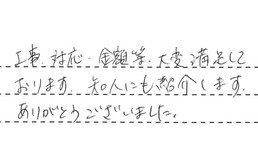 工事、対応・金額等、大変満足して
おります。知人にも紹介します。
ありがとうございました。